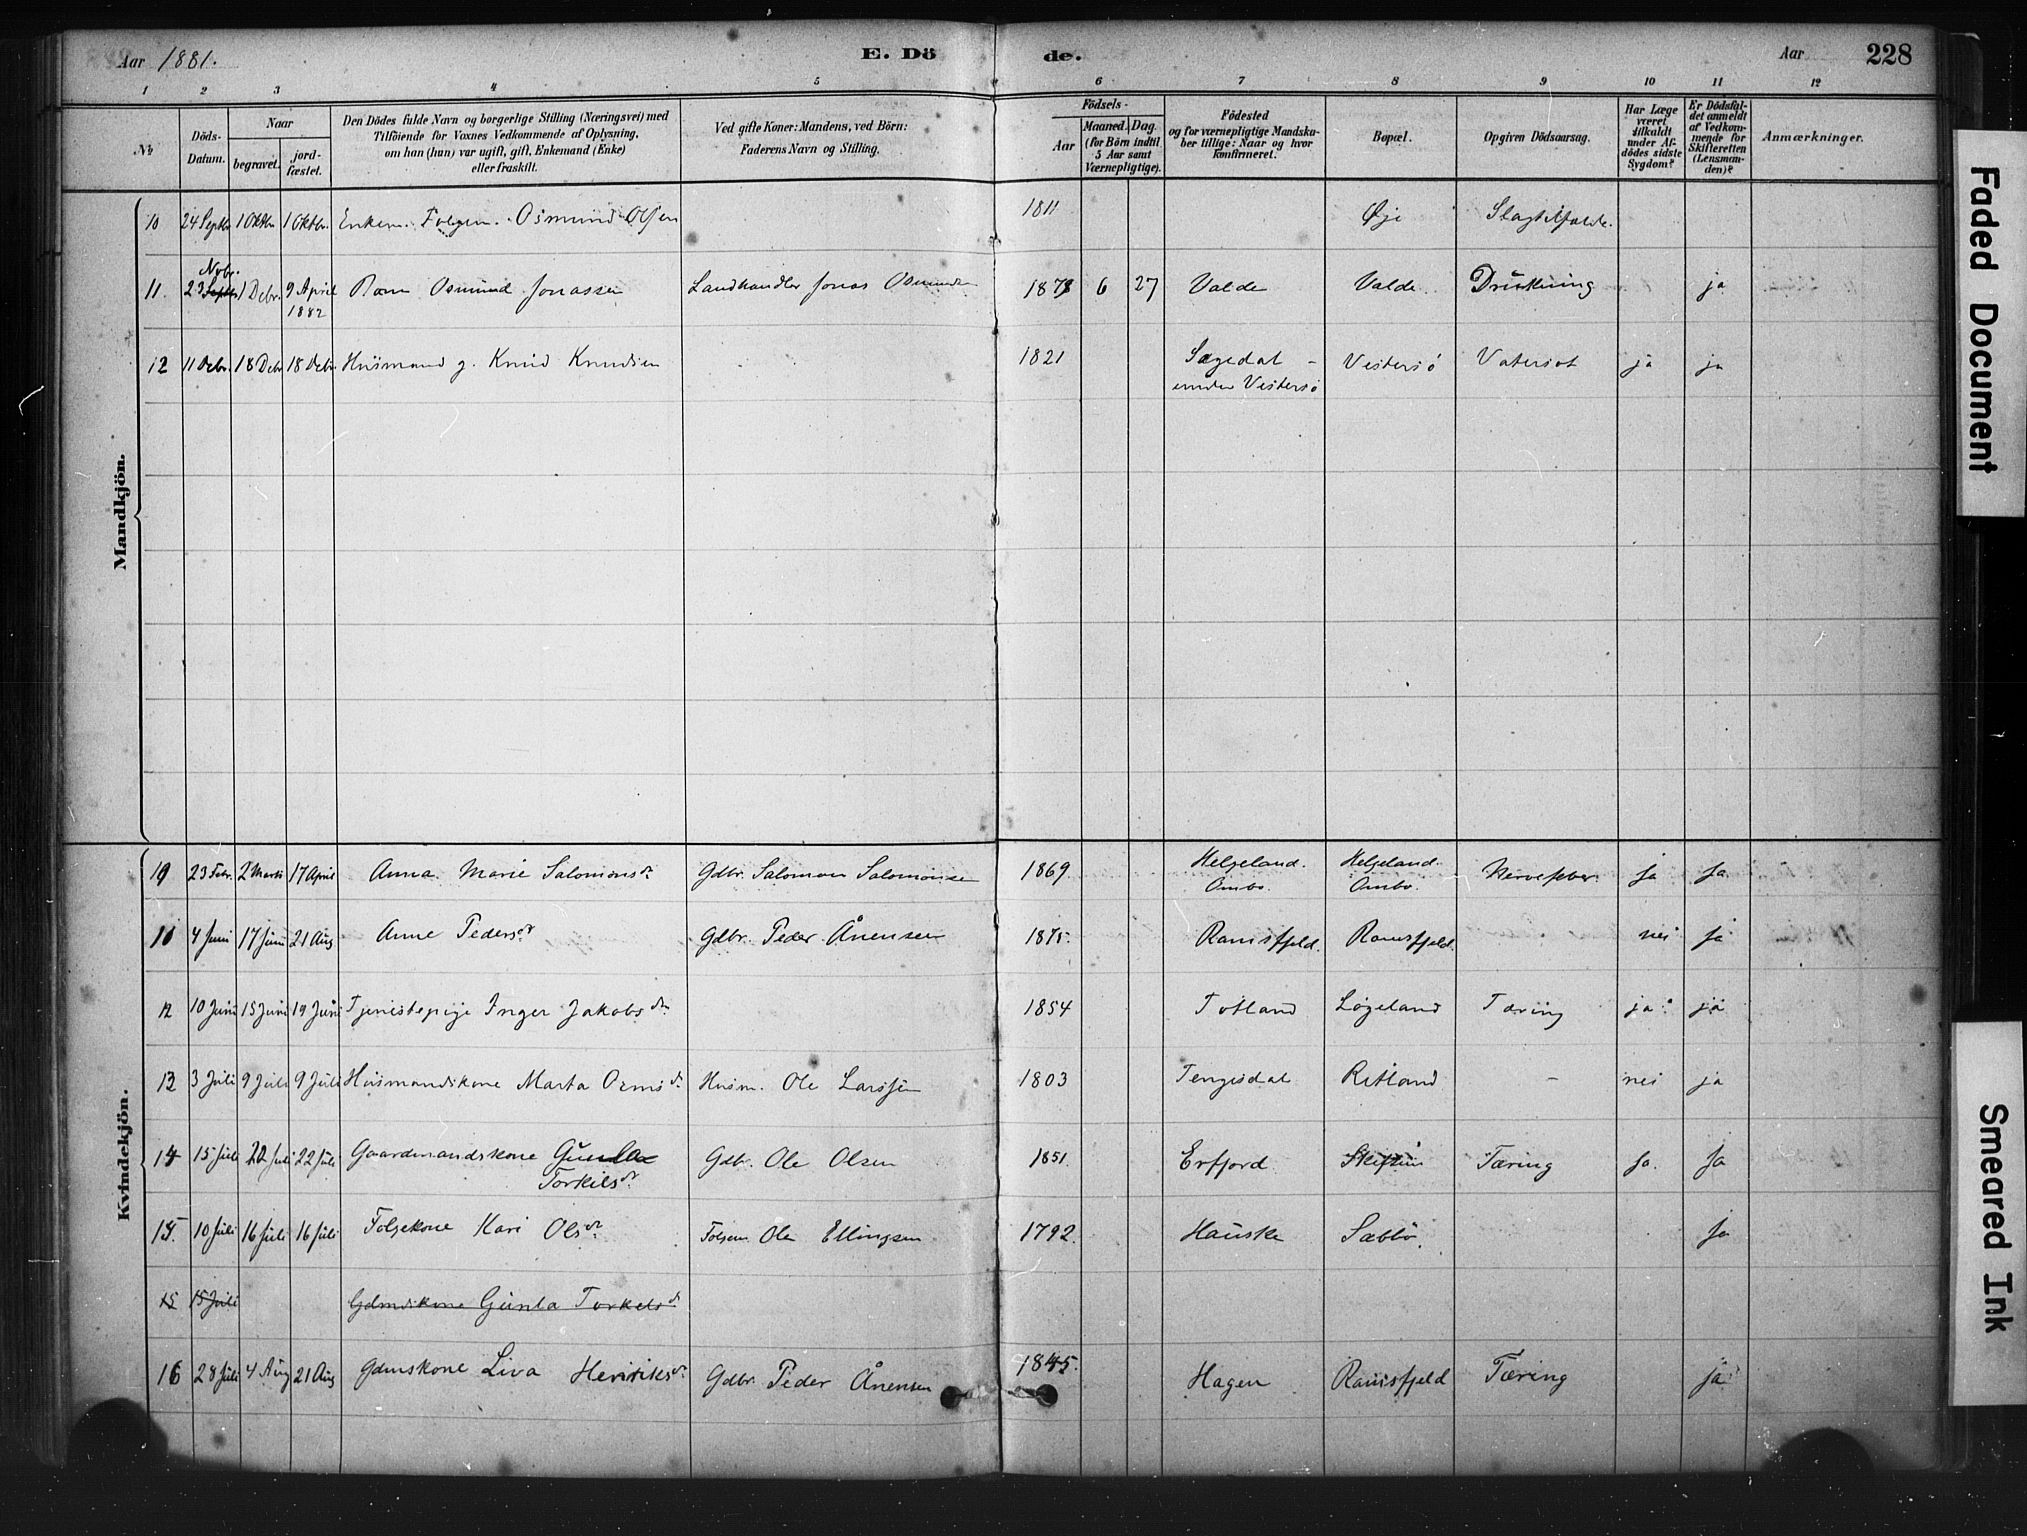 Aar 1881. E. Dö de. Aar 228
1 2 3 4 5 6 7 8 9 10 11 12
No
Döds-Datum.
Naar
begravet.
jord-fæstet.
Den Dödes fulde Navn og borgerlige Stilling (Næringsvei) med
Tilföiende for Voxnes Vedkommende af Oplysning,
om han (hun) var ugift, gift, Enkemand (Enke)
eller fraskilt.
Ved gifte Koner: Mandens, ved Börn:
Faderens Navn og Stilling.
Födsels-
Aar
Maaned. Dag.
(for Börn indtil
5 Aar samt
Værnepligtige).
Födested
og for værnepligtige Mandska-
ber tillige: Naar og hvor
konfirmeret.
Bopæl.
Opgiven Dödsaarsag.
Har Læge
været
tilkaldt
under Af-
dödes sidste
Sygdom?
Er Dödsfal-
det anmeldt
af Vedkom-
mende for
Skifteretten
(Lensman-
den)?
Anmærkninger.
Mandkjön.
10 24 Septbr 1 Oktbr 1 Oktbr. Enkem. Folgem. Osmund Olsen 1811 Øje Slagtilfælde.
Novbr.
11. 23 Septbr 1 Debr. 9 April Barn Osmund Jonassen Landhandler Jonas Osmundsen 1873 6 27 Valde Valde Drukning ja
1882
12 11 Debr. 18 Debr 18 Debr. Husmand g. Knud Knudsen 1821 Sagedal - Vestersø Vatersot ja ja
under Vestersø
Kvindekjön.
10 23 Febr. 2 Marts 17 April Anna Marie Salomonsdr Gdbr. Salomon Salomonsen 1869 Helgeland. Helgeland. Nervefeber ja Ja
Ombo. Ombo.
11 4 Juni 17 Juni 21 Aug Anne Pedersdr Gdbr. Peder Ånensen 1875. Ramsfjeld. Ramsfjeld. nei Ja
12 10 Juni 15 Juni 19 Juni Tjenestepige Inger Jakobsdr 1854 Totland Løgeland Tæring ja ja
13 3 Juli 9 Juli 9 Juli Husmandskone Marta Ormsdr Husm. Ole Larssen 1803 Tengesdal Ritland - nei ja
14 15 Juli 22 Juli 22 Juli Gaardmandskone Gunla Gdb. Ole Olsen 1851. Erfjord Skiftun Tæring Ja. Ja
Torkelsdr
15. 10 Juli 16 Juli 16 Juli Folgekone Kari Olsdr Folgem Ole Ellingsen 1792. Hauske Sæbbø. Ja
15 15 Juli Gdmdskone Gunla Torkelsdr
16 28 Juli 4 Aug 21 Aug Gdmskone Liva Henriksdr Gdbr. Peder Ånensen 1845. Hagen Ramsfjeld Tæring ja
Faded Document
Smeared Ink